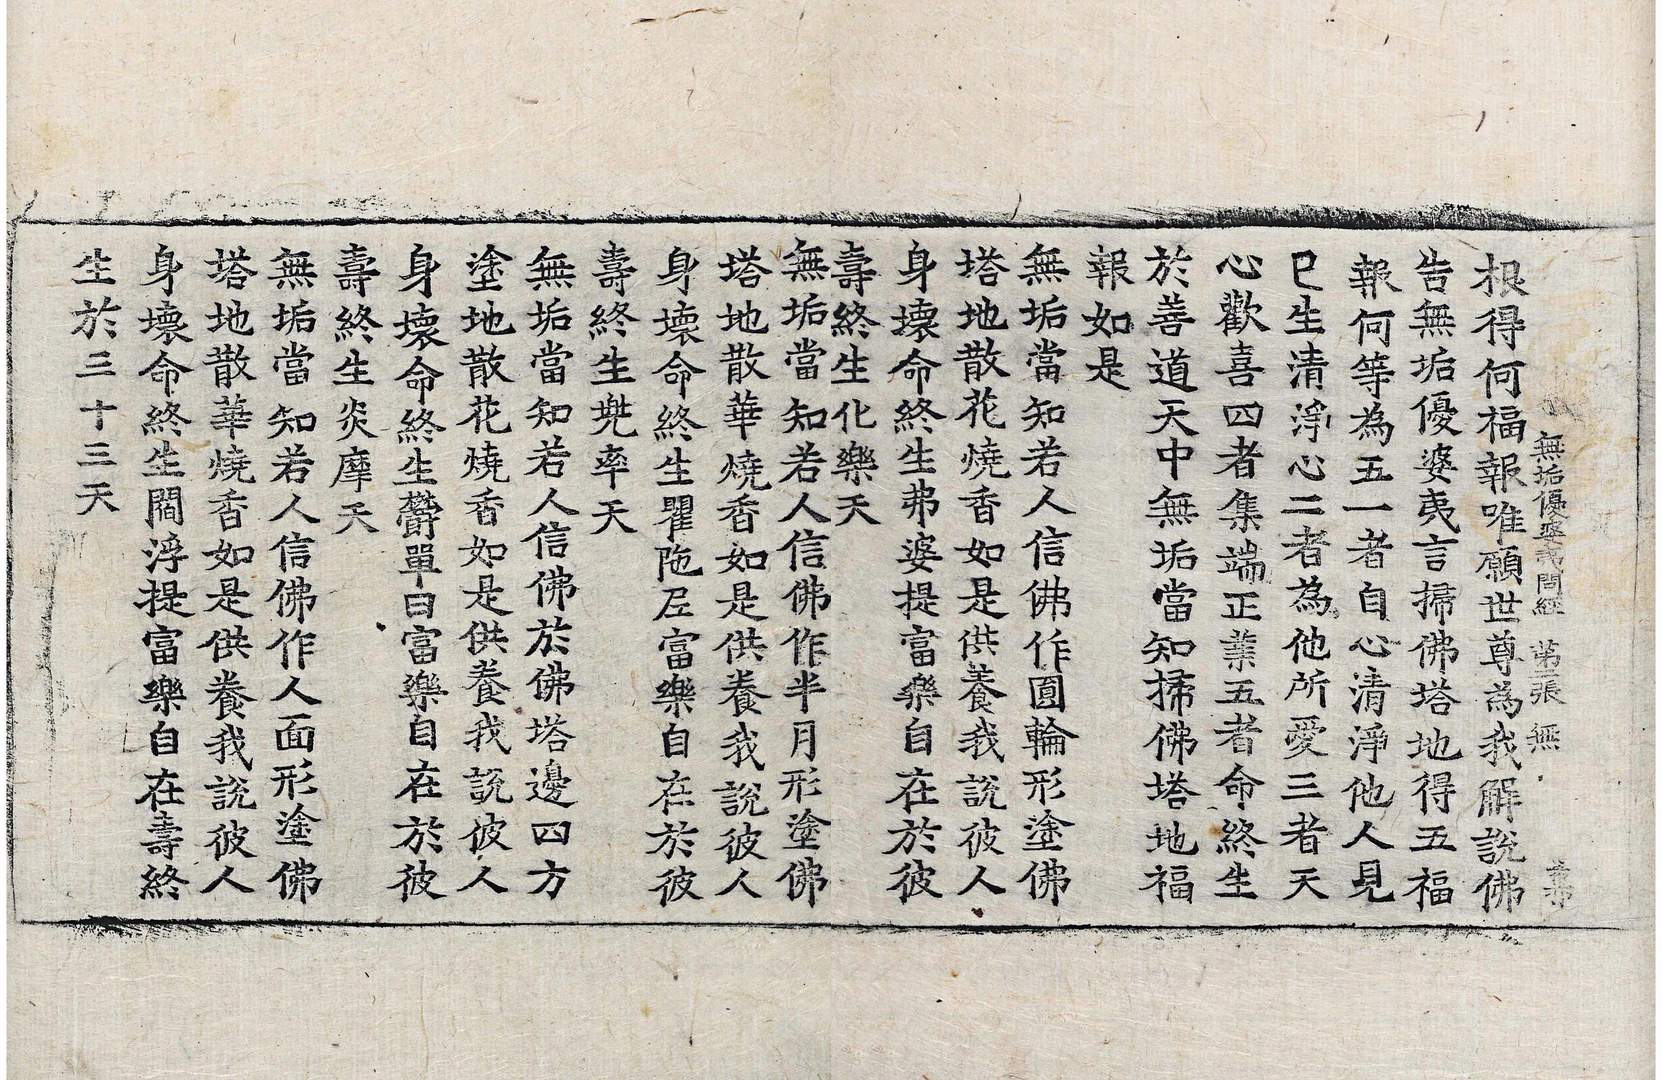 無垢優婆夷問經 第二張 無
根得何福報唯願世尊為我解說佛
告無垢優婆夷言掃佛塔地得五福
報何等為五一者自心清淨他人見
已生清淨心二者為他所愛三者天
心歡喜四者集端正業五者命終生
於善道天中無垢當知掃佛塔地福
報如是
無垢當知若人信佛作圓輪形塗佛
塔地散花燒香如是供養我說彼人
身壞命終生弗婆提富樂自在於彼
壽終生化樂天
無垢當知若人信佛作半月形塗佛
塔地散華燒香如是供養我說彼人
身壞命終生瞿陁尼富樂自在於彼
壽終生兠率天
無垢當知若人信佛於佛塔邊四方
塗地散花燒香如是供養我說彼人
身壞命終生欝單曰富樂自在於彼
壽終生炎摩天
無垢當知若人信佛作人面形塗佛
塔地散華燒香如是供養我說彼人
身壞命終生閻浮提富樂自在壽終
生於三十三天